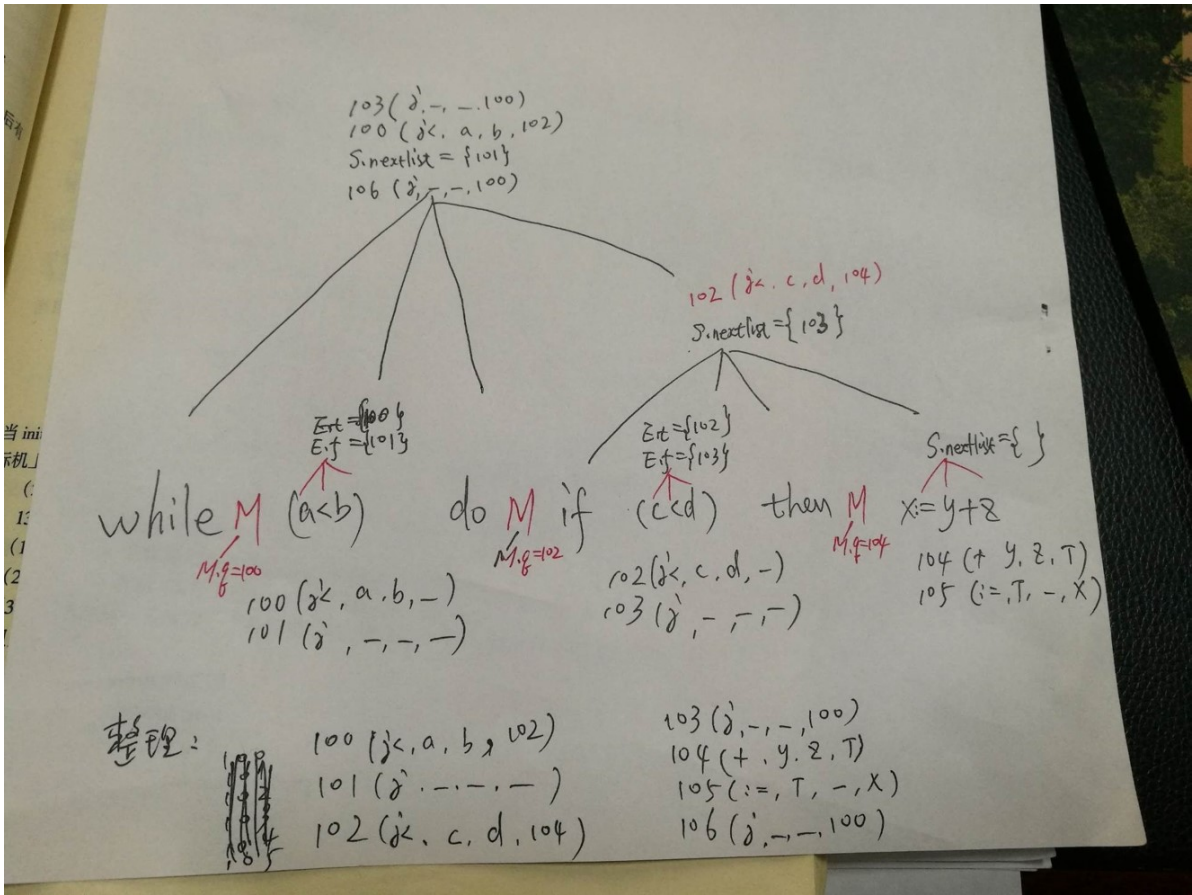 103(j,-,-,100)
100(j<,a,b,102)
S.nextlist={101}
106(j,-,-,100)
102(j<,c,d,104)
S.nextlist={103}
E.t={100}
E.f={101}
E.t={102}
E.f={103}
S.nextlist={ }
while M (a<b) do M if (c<d) then M x:=y+z
M.q=100
M.q=102
M.q=104
100(j<,a,b,-)
101(j,-,-,-)
102(j<,c,d,-)
103(j,-,-,-)
104(+ y,z,T)
105(:=,T,-,X)
整理:
100(j<,a,b,102)
101(j,-,-,-)
102(j<,c,d,104)
103(j,-,-,100)
104(+,y,z,T)
105(:=,T,-,X)
106(j,-,-,100)
当 ini
标机